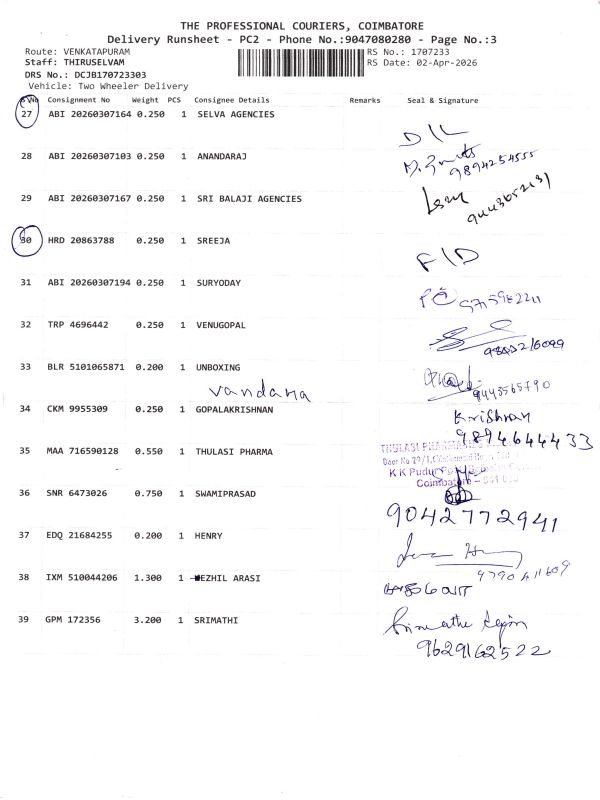 THE PROFESSIONAL COURIERS, COIMBATORE
Delivery Runsheet - PC2 - Phone No.:9047080280 - Page No.:3
Route: VENKATAPURAM RS No.: 1707233
Staff: THIRUSELVAM RS Date: 02-Apr-2026
DRS No.: DCJB170723303
Vehicle: Two Wheeler Delivery
S.No Consignment No Weight PCS Consignee Details Remarks Seal & Signature
27 ABI 20260307164 0.250 1 SELVA AGENCIES
D/L
28 ABI 20260307103 0.250 1 ANANDARAJ
9894254555
29 ABI 20260307167 0.250 1 SRI BALAJI AGENCIES
30 HRD 20863788 0.250 1 SREEJA
F/D
31 ABI 20260307194 0.250 1 SURYODAY
32 TRP 4696442 0.250 1 VENUGOPAL
33 BLR 5101065871 0.200 1 UNBOXING
vandana
9443565790
34 CKM 9955309 0.250 1 GOPALAKRISHNAN
Krishnan
9894644433
35 MAA 716590128 0.550 1 THULASI PHARMA
THULASI PHARMA
K K Pudur
Coimbatore
36 SNR 6473026 0.750 1 SWAMIPRASAD
9042772941
37 EDQ 21684255 0.200 1 HENRY
38 IXM 510044206 1.300 1 EZHIL ARASI
39 GPM 172356 3.200 1 SRIMATHI
9629162522